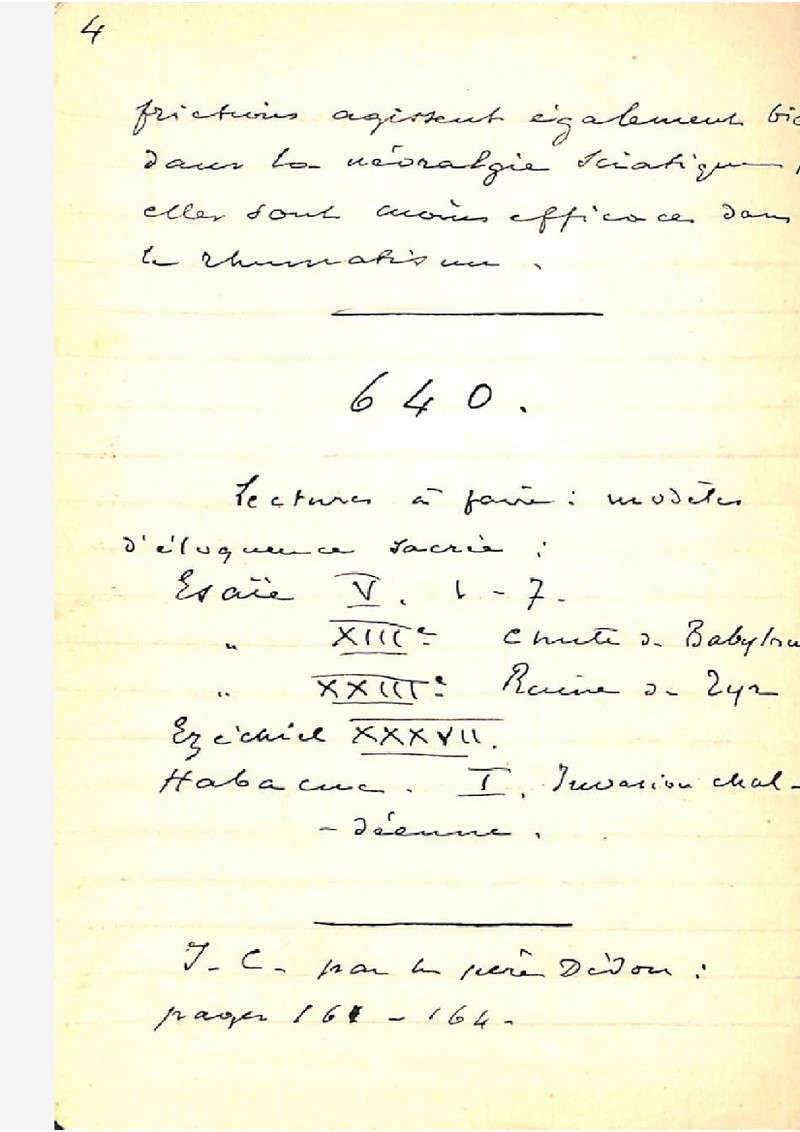 4
frictions agissent également bie
dans la névralgie sciatique,
elles sont moins efficaces dans
le rhumatisme.
640.
Lectures à faire : modèles
d'éloquence sacrée :
Esaïe V. 1-7.
" XIIIe Chute de Babylon
" XXIIIe Ruine de Tyr
Ezéchiel XXXVII.
Habacuc. I. Invasion chal-
-déenne.
J. C. par le père Didon :
pages 161 - 164.